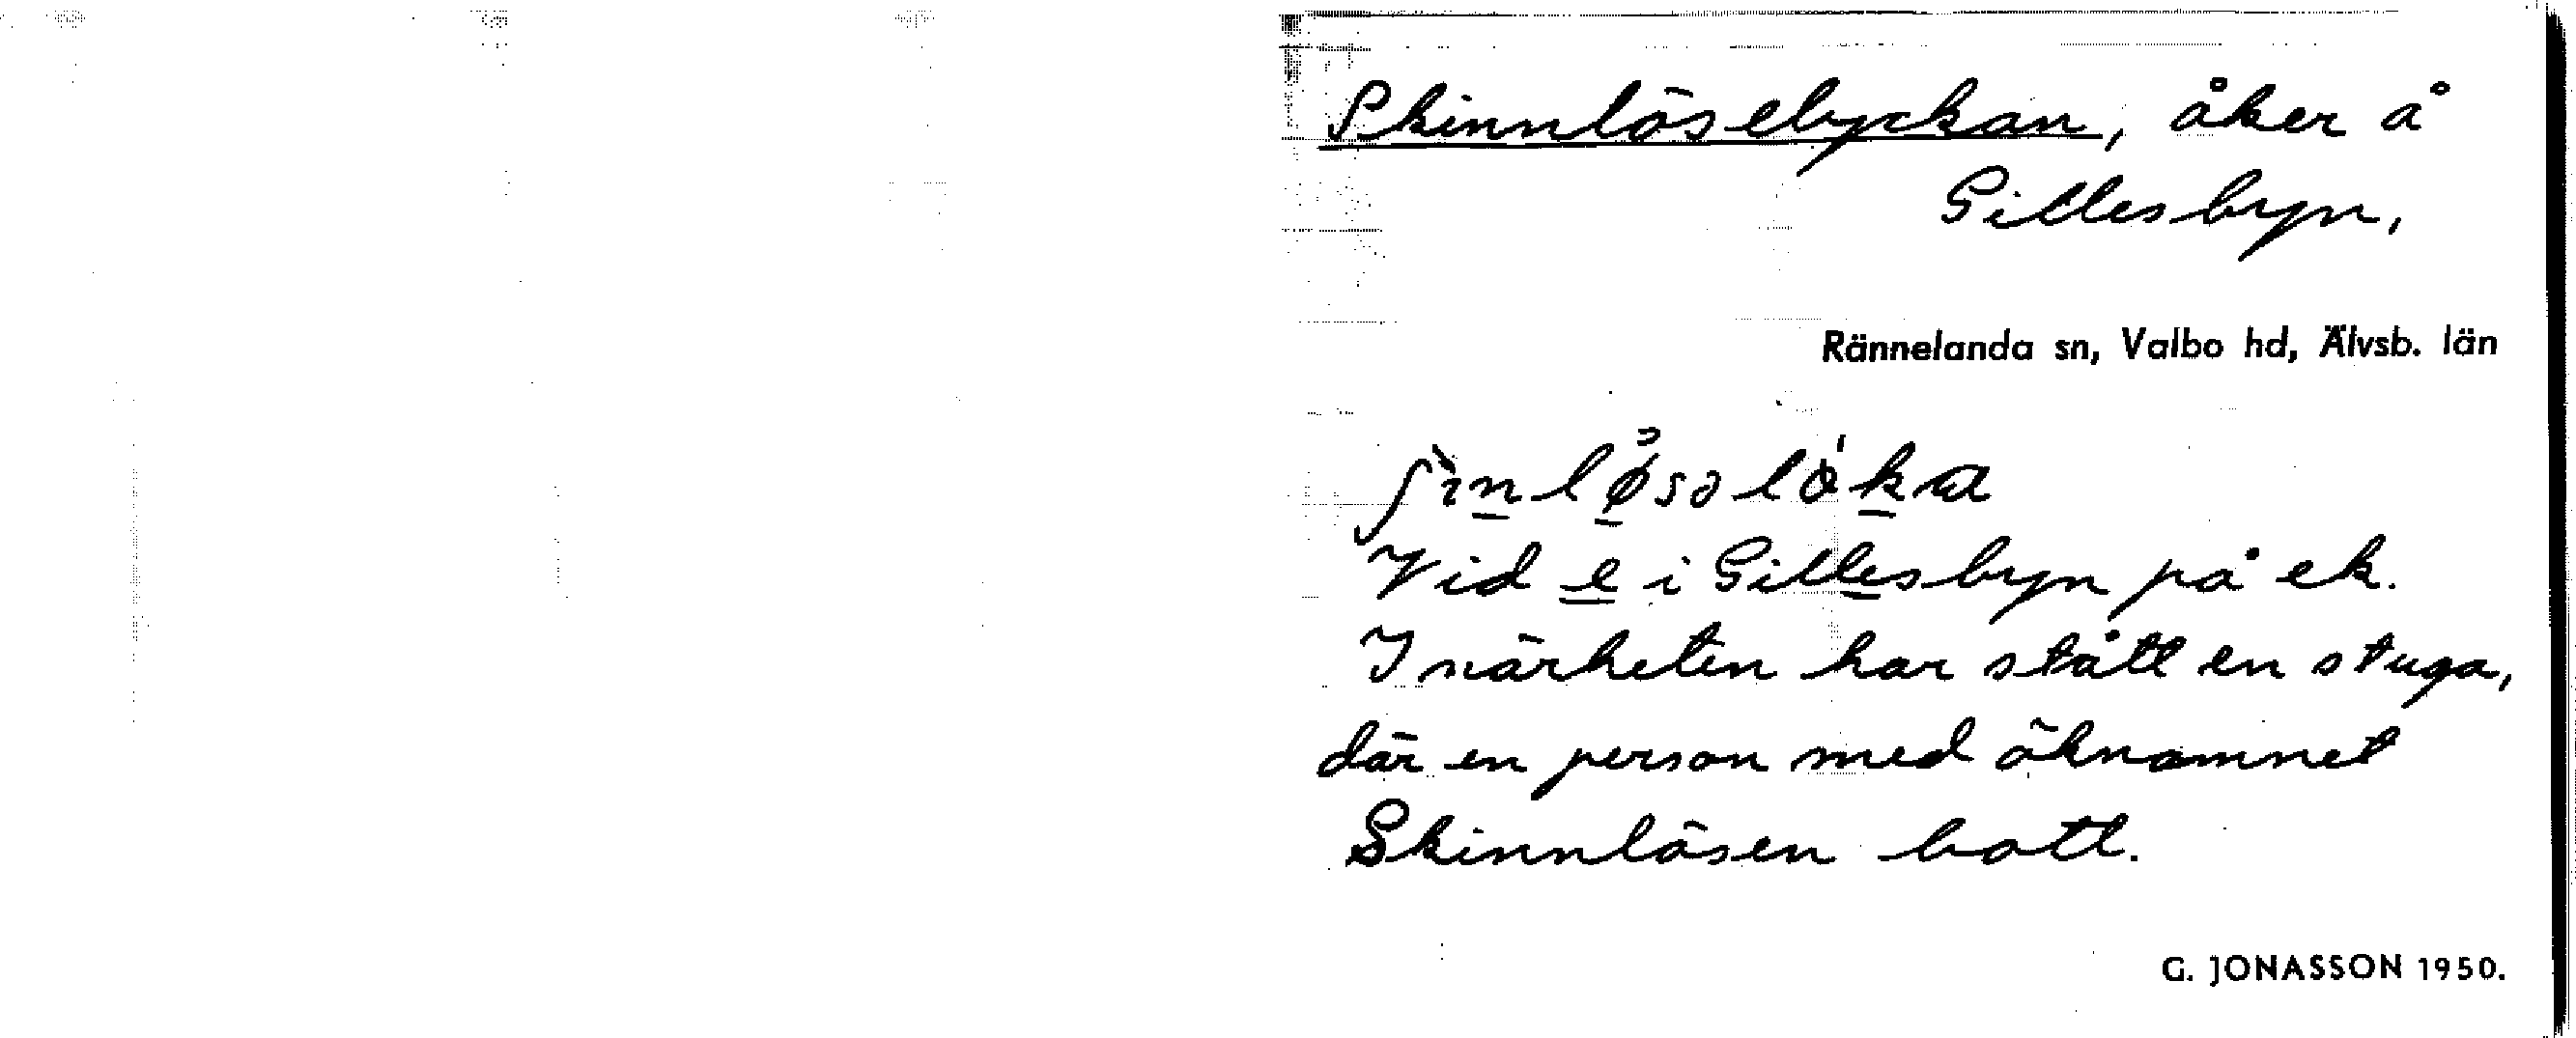 Skinnlöselyckan, åker å
Gillesbyn,
Rännelanda sn, Valbo hd, Älvsb. län
Vid e i Gillesbyn på ek.
I närheten har stått en stuga,
där en person med öknamnet
Skinnlösen bott.
G. JONASSON 1950.